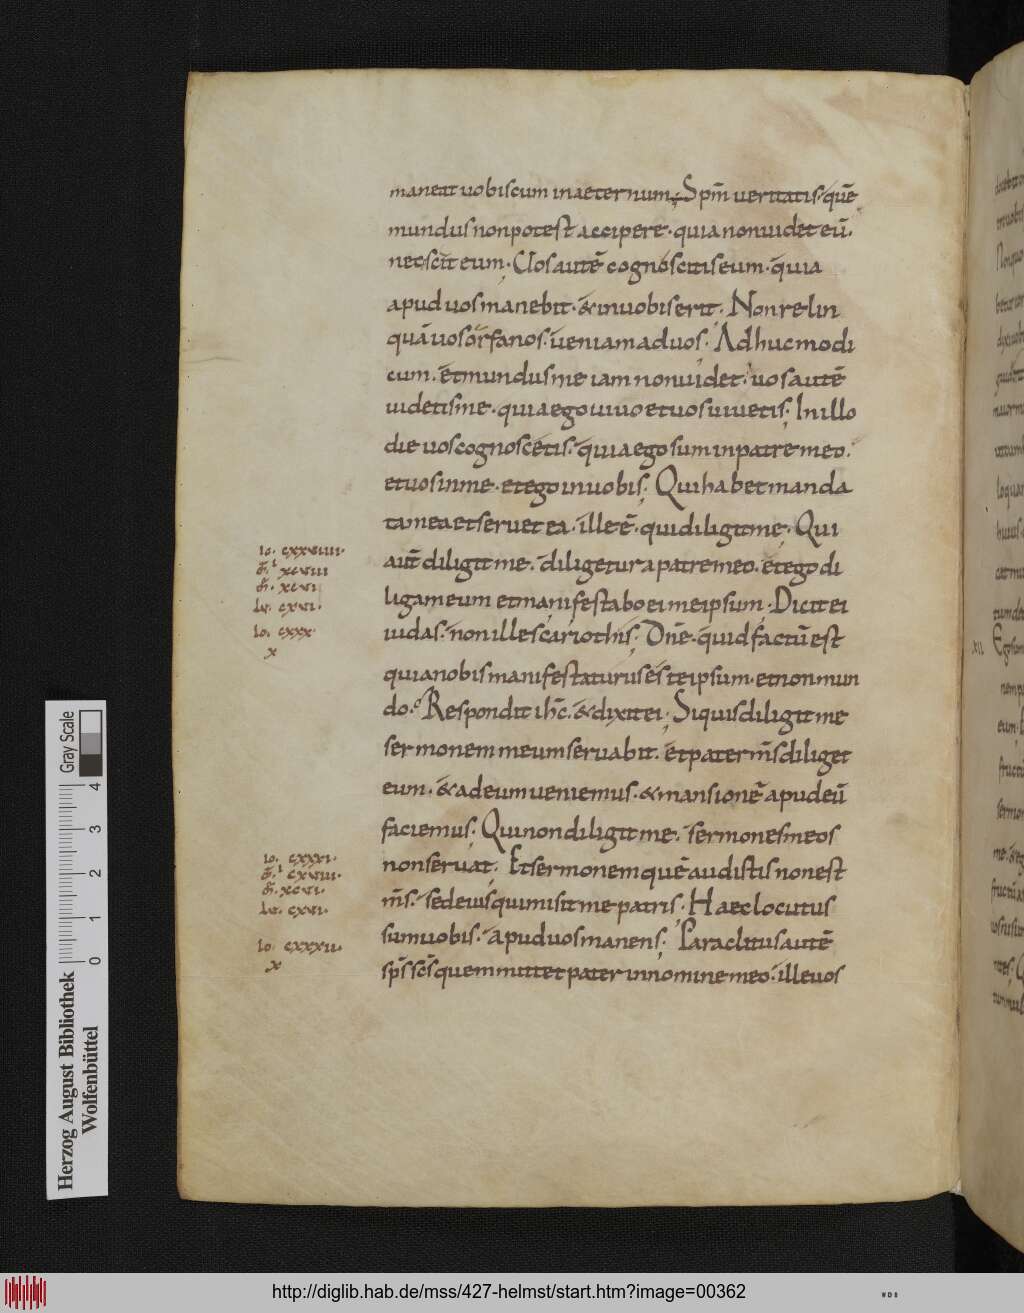 maneat uobiscum inaeternum; Spm̄ ueritatis· quē
mundus nonpotest accipere· quia nonuidet eū·
necscit eum· Uos autē cognoscitis eum· quia
apud uos manebit· & inuobis erit· Nonrelin
quā uos orfanos· ueniam aduos· Adhuc modi
cum· et mundus me iam nonuidet· uos autē
uidetis me· quia ego uiuo et uos uiuetis· In illo
die uos cognoscetis· quia ego sum inpatre meo·
et uos in me· et ego inuobis; Qui habet manda
ta mea et seruet ea· ille ē· qui diligit me· Qui
aut̄ diligit me· diligetur a patre meo· et ego di
ligam eum et manifestabo ei meipsum· Dicit ei
iudas· non ille scariothis; Dn̄e· quid factū est
quia nobis manifestaturus es teipsum· et non mun
do· Respondit ihc̄· & dixit ei; Siquis diligit me
sermonem meum seruabit· et pater m̄s diliget
eum· & ad eum ueniemus· & mansionē apud eū
faciemus; Qui non diligit me· sermones meos
non seruat· Et sermonem quē audistis non est
m̄s· sed eius qui misit me patris· Haec locutus
sum uobis· apud uos manens; Paraclitus autē
sp̄s sc̄s quem mittet pater in nomine meo· ille uos
Io. cxxviiii·
m̄r xcviii
m̄· xcvi
Lu· cxvi·
Io. cxxx·
x
Io. cxxxi·
m̄· xcvi·
Lu· cxvi·
Io. cxxxii·
x
XII
Herzog August Bibliothek
Wolfenbüttel
Gray Scale
0 1 2 3 4
http://diglib.hab.de/mss/427-helmst/start.htm?image=00362